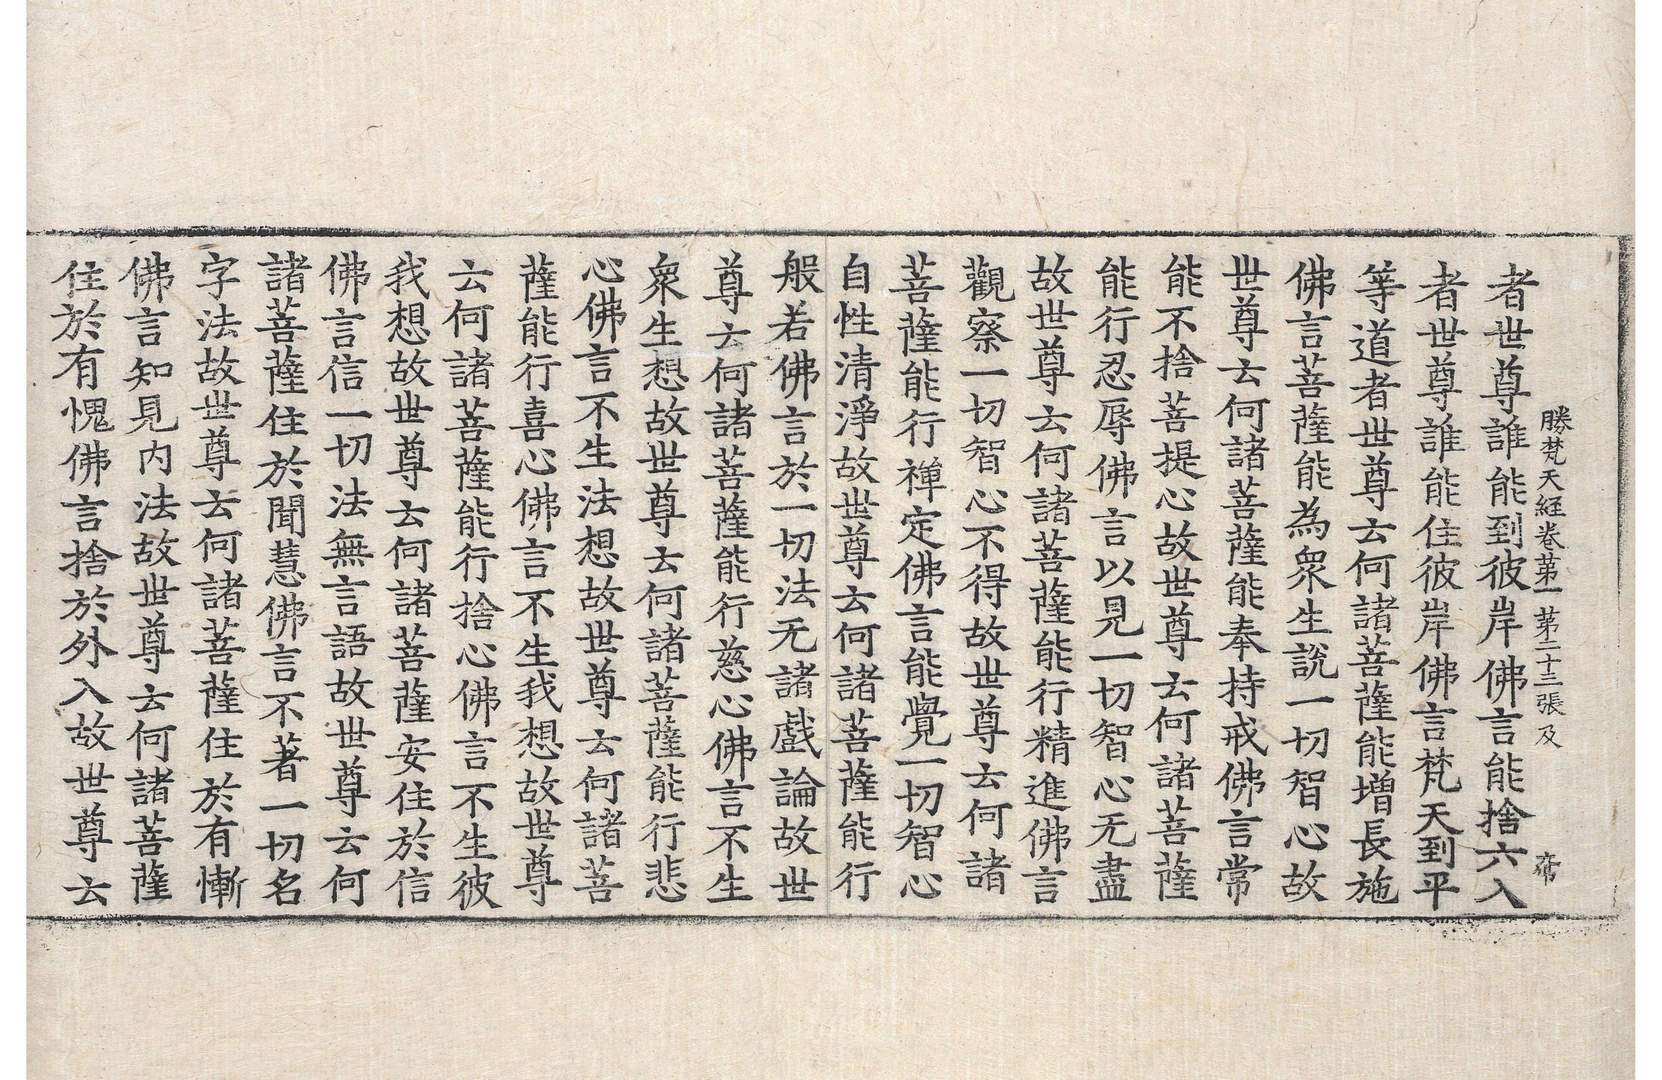 勝梵天経卷苐一 第二十三張 及
者世尊誰能到彼岸佛言能捨六入
者世尊誰能住彼岸佛言梵天到平
等道者世尊云何諸菩薩能增長施
佛言菩薩能為衆生說一切智心故
世尊云何諸菩薩能奉持戒佛言常
能不捨菩提心故世尊云何諸菩薩
能行忍辱佛言以見一切智心无盡
故世尊云何諸菩薩能行精進佛言
觀察一切智心不得故世尊云何諸
菩薩能行禪定佛言能覺一切智心
自性清淨故世尊云何諸菩薩能行
般若佛言於一切法无諸戲論故世
尊云何諸菩薩能行慈心佛言不生
衆生想故世尊云何諸菩薩能行悲
心佛言不生法想故世尊云何諸菩
薩能行喜心佛言不生我想故世尊
云何諸菩薩能行捨心佛言不生彼
我想故世尊云何諸菩薩安住於信
佛言信一切法無言語故世尊云何
諸菩薩住於聞慧佛言不著一切名
字法故世尊云何諸菩薩住於有慚
佛言知見内法故世尊云何諸菩薩
住於有愧佛言捨於外入故世尊云